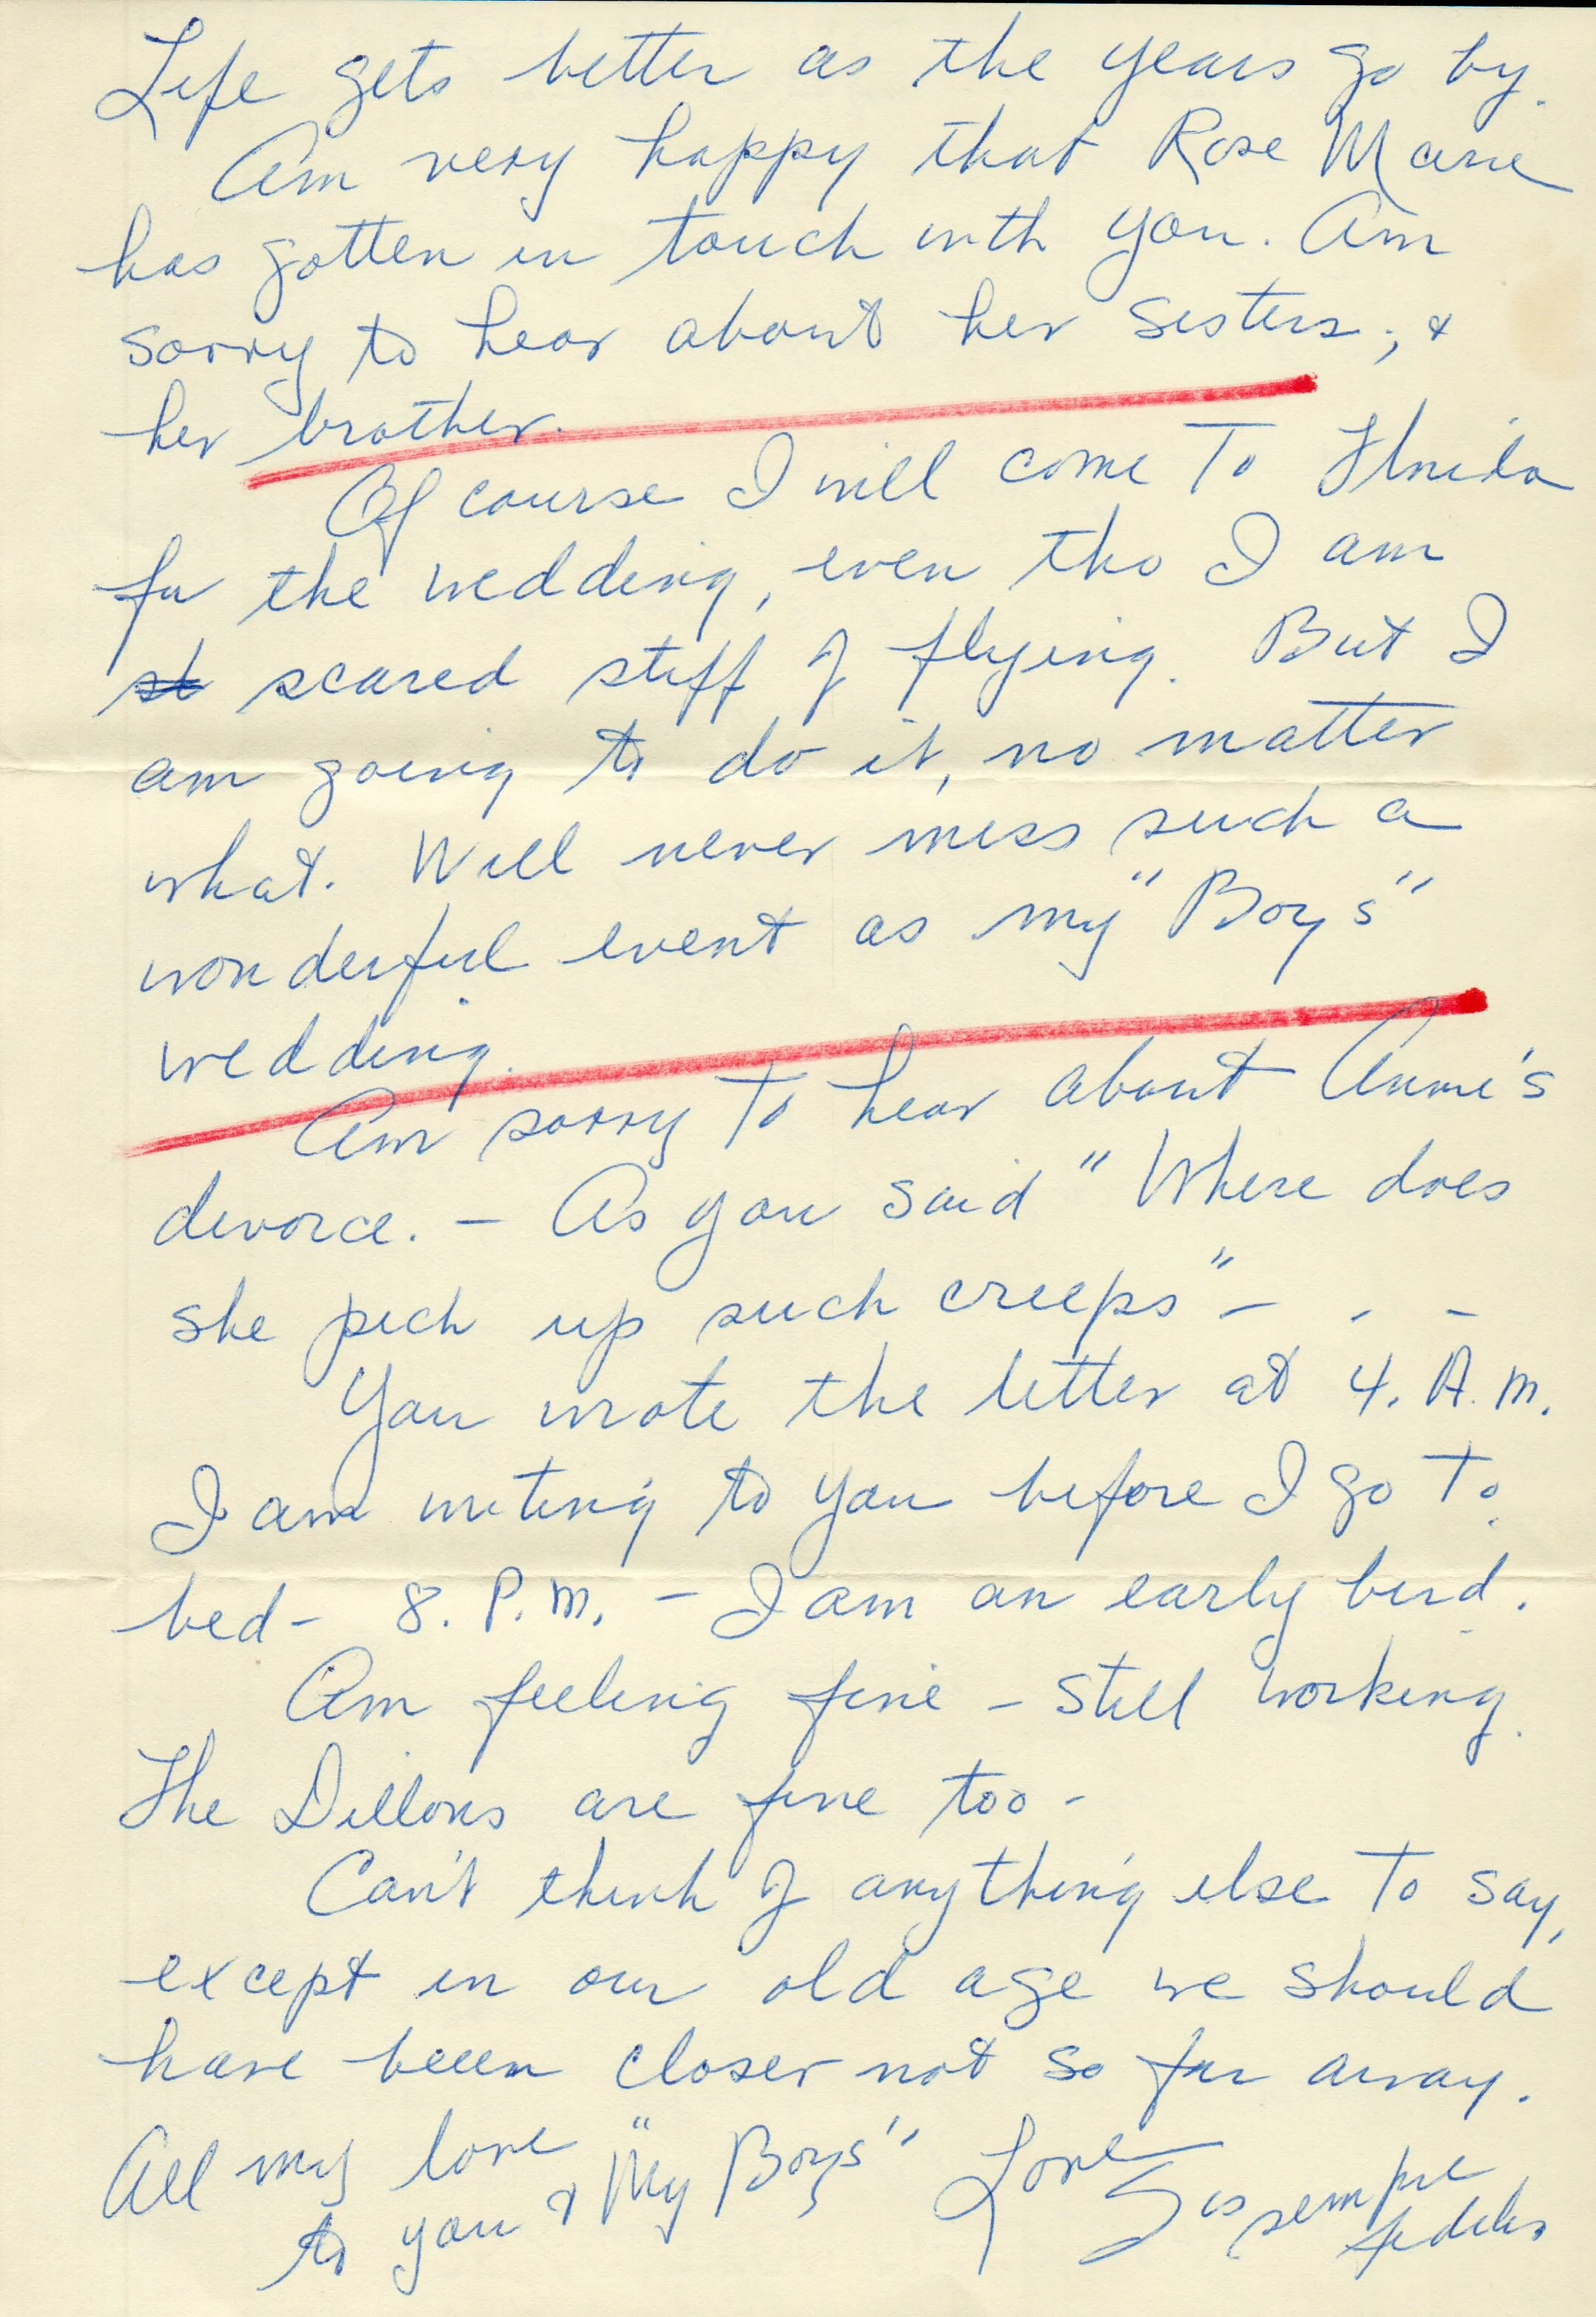 Life gets better as the years go by.
Am very happy that Rose Marie
has gotten in touch with you. Am
sorry to hear about her sisters, &
her brother.
Of course I will come to Florida
for the wedding, even tho I am
st scared stiff of flying. But I
am going to do it, no matter
what. Will never miss such a
wonderful event as my "Boy's"
wedding.
Am sorry to hear about Anne's
divorce. – As you said "Where does
she pick up such creeps" – - –
You wrote the letter at 4. A.M.
I am writing to you before I go to
bed – 8. P.M. – I am an early bird.
Am feeling fine – still working.
The Dillons are fine too –
Can't think of anything else to say,
except in our old age we should
have beeen closer not so far away.
All my love "My Boys" Love
to you & Sis sempre
fidelis